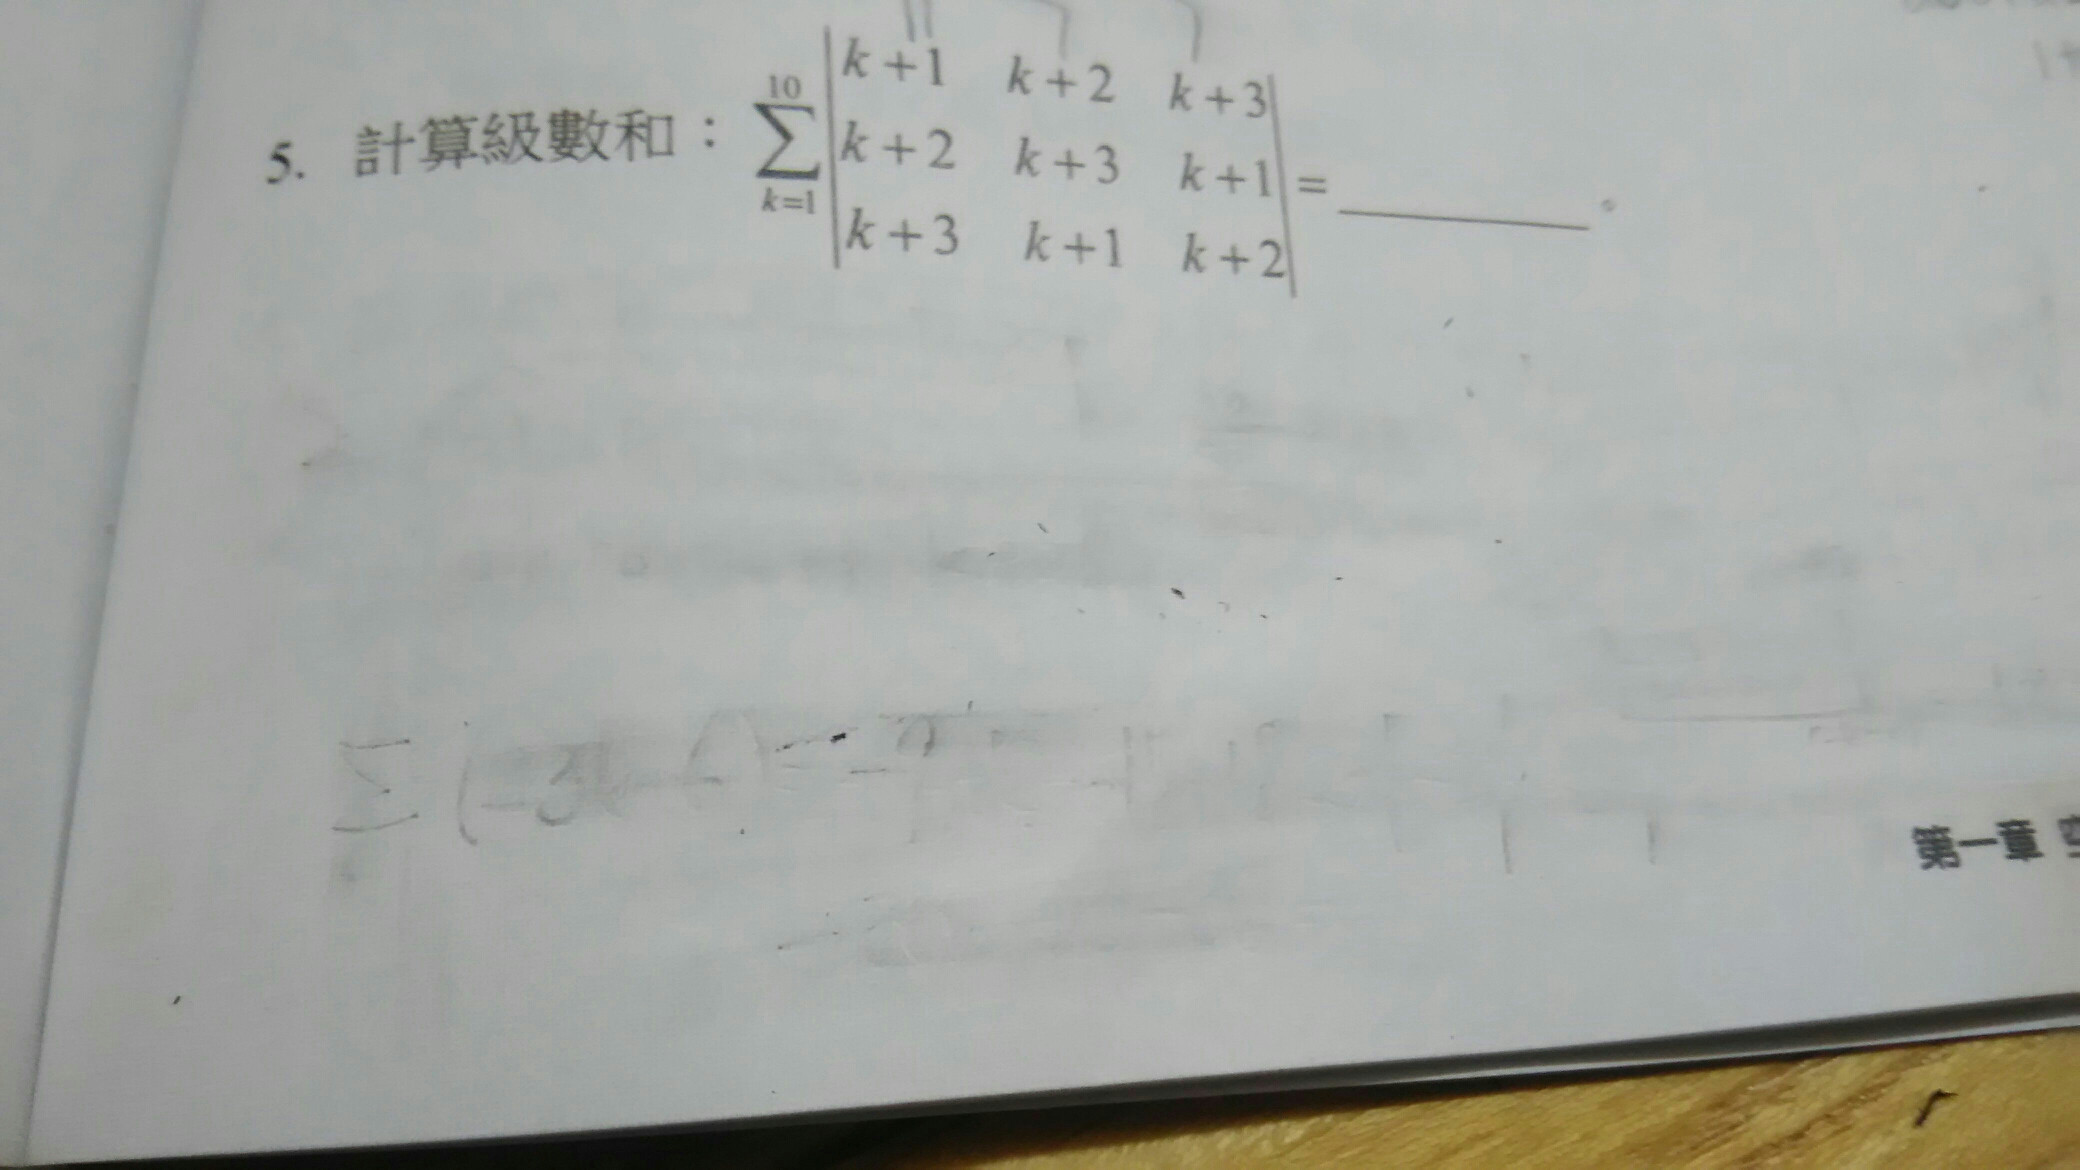 5. 計算級數和：$\sum_{k=1}^{10} \begin{vmatrix} k+1 & k+2 & k+3 \\ k+2 & k+3 & k+1 \\ k+3 & k+1 & k+2 \end{vmatrix} =$ ________。
第一章